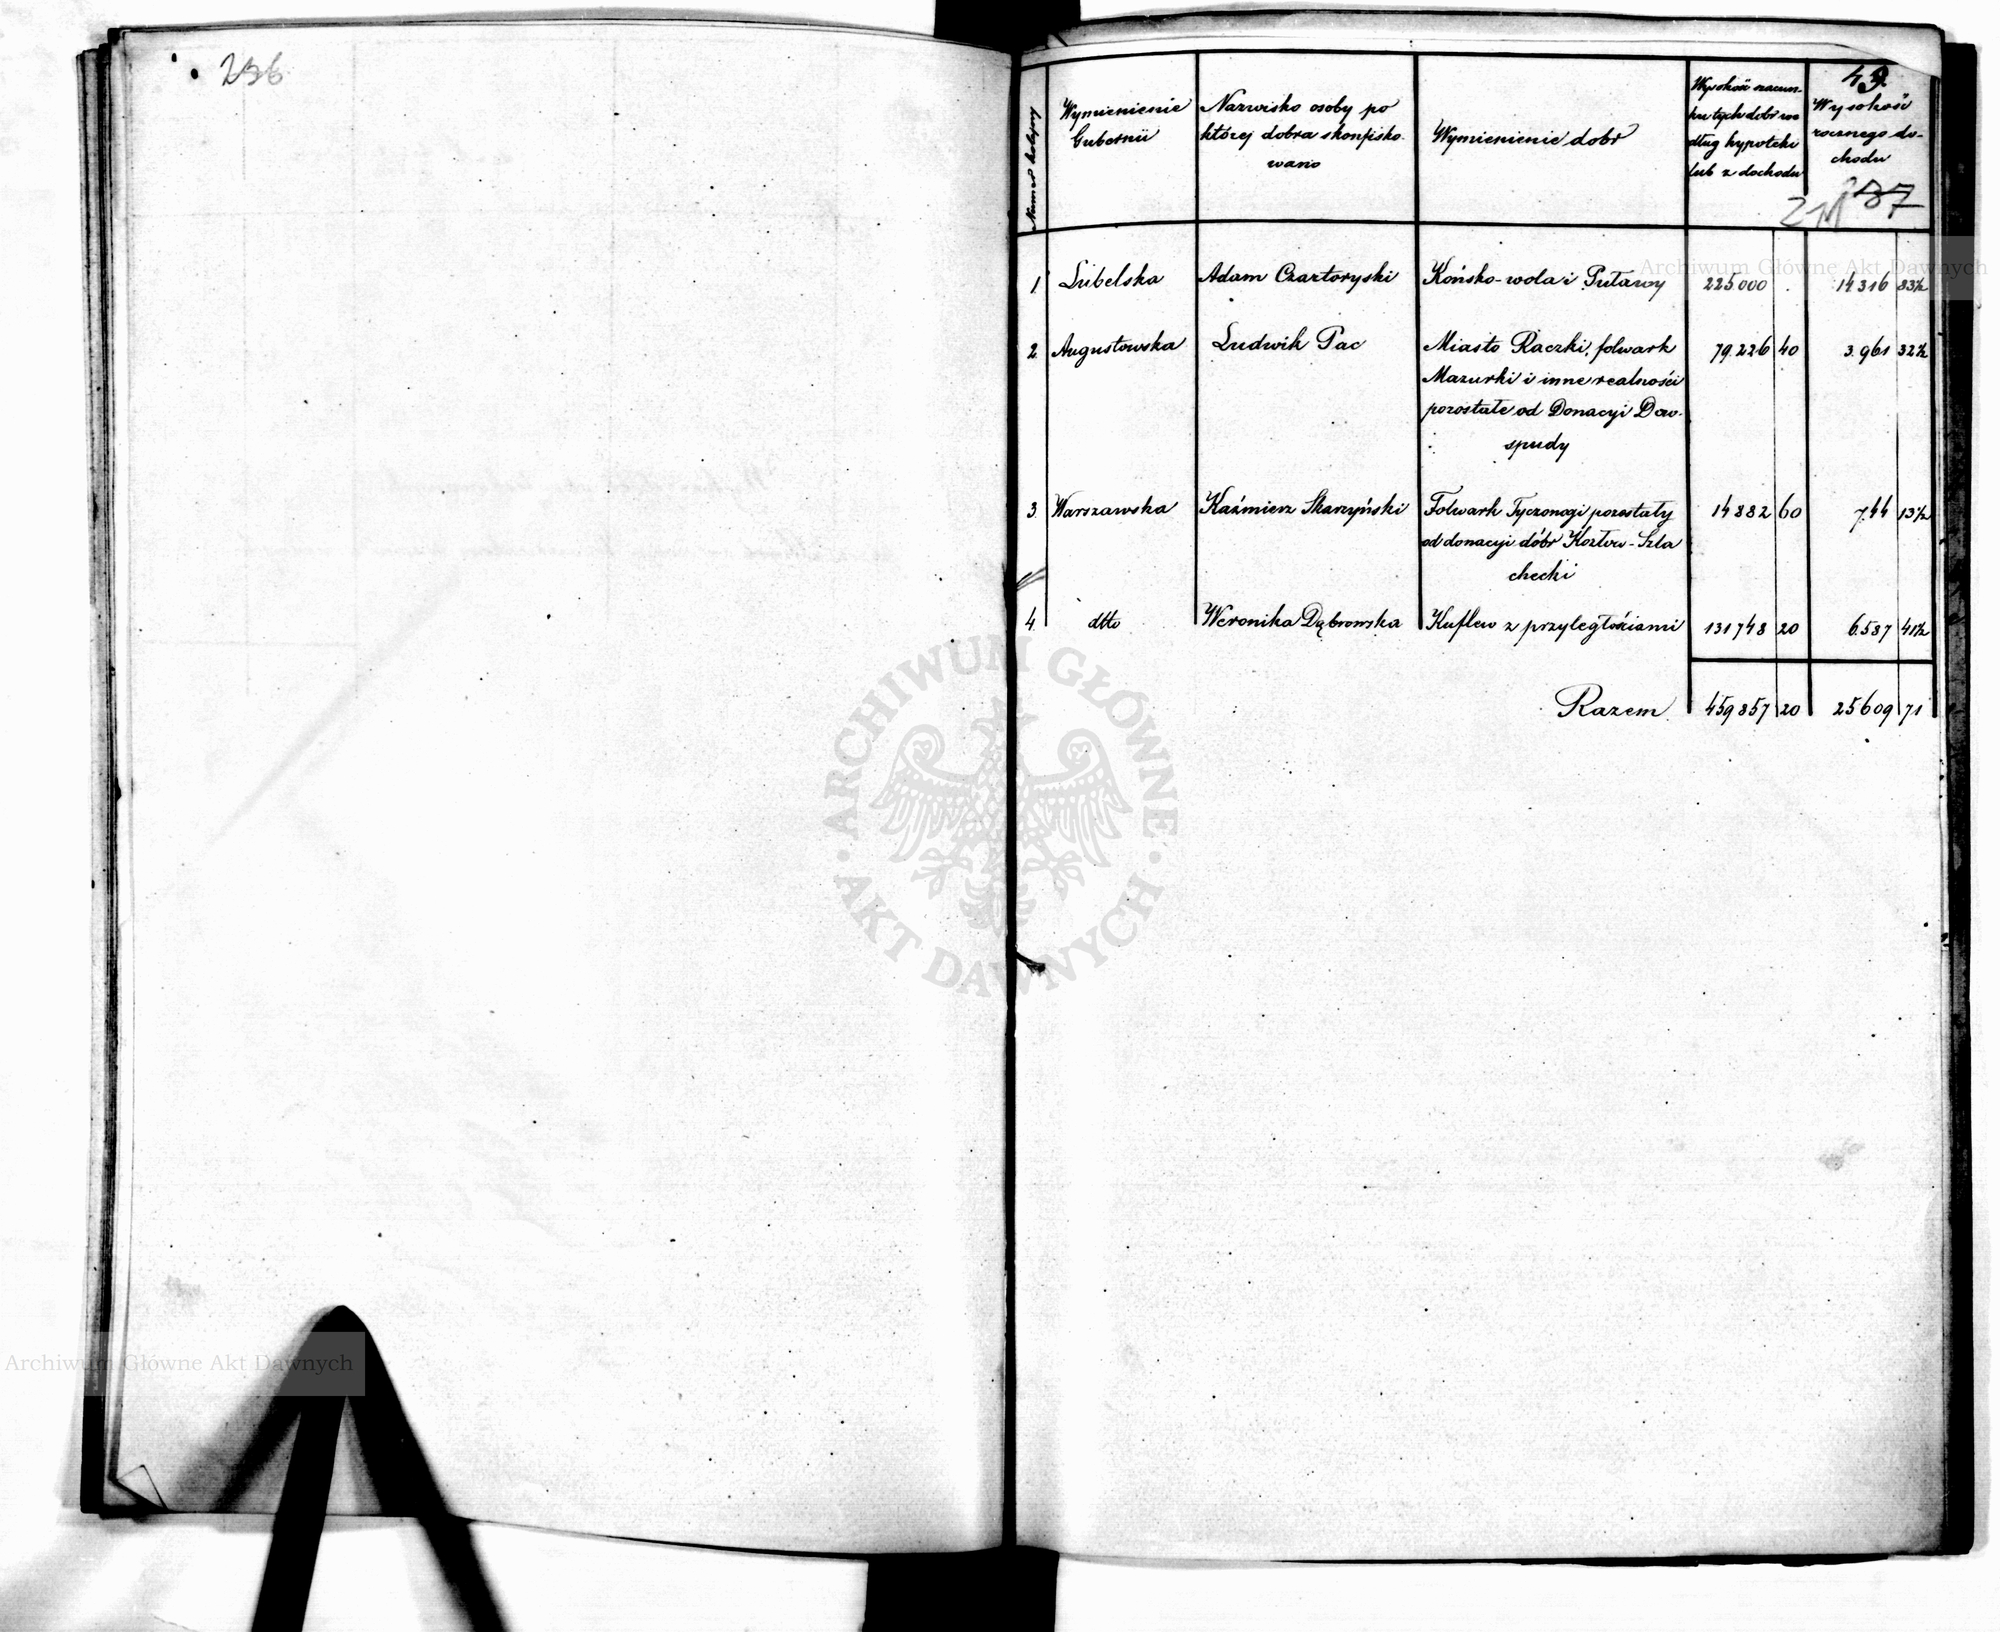 236
49
237
Numer kolejny
Wymienienie
Gubernii
Nazwisko osoby po
której dobra skonfisko-
wano
Wymienienie dóbr
Wysokość szacun-
ku tych dóbr we
dług hypoteki
lub z dochodu
Wysokość
rocznego do-
chodu
1. Lubelska Adam Czartoryski Końsko-wola i Puławy 225.000 . 14.316 83½
2. Augustowska Ludwik Pac Miasto Raczki, folwark 79.226 40 3.961 32½
Mazurki i inne realności
pozostałe od Donacyi Dow-
spudy
3. Warszawska Kaźmierz Skarzyński Folwark Tyczonogi pozostały 14882 60 744 13½
od donacyi dóbr Kozłow-Szla
checki
4. dtto Weronika Dąbrowska Kuflew z przyległościami 131748 20 6.587 41½
Razem 459857 20 25609 71
Archiwum Główne Akt Dawnych
ARCHIWUM GŁÓWNE
AKT DAWNYCH
Archiwum Główne Akt Dawnych